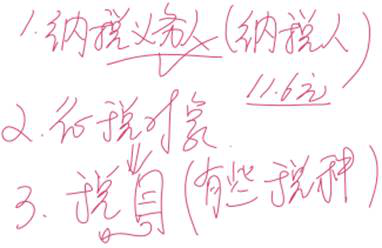 1.纳税义务人(纳税人)
11.6元
2.征税对象
3.税目(有些税种)